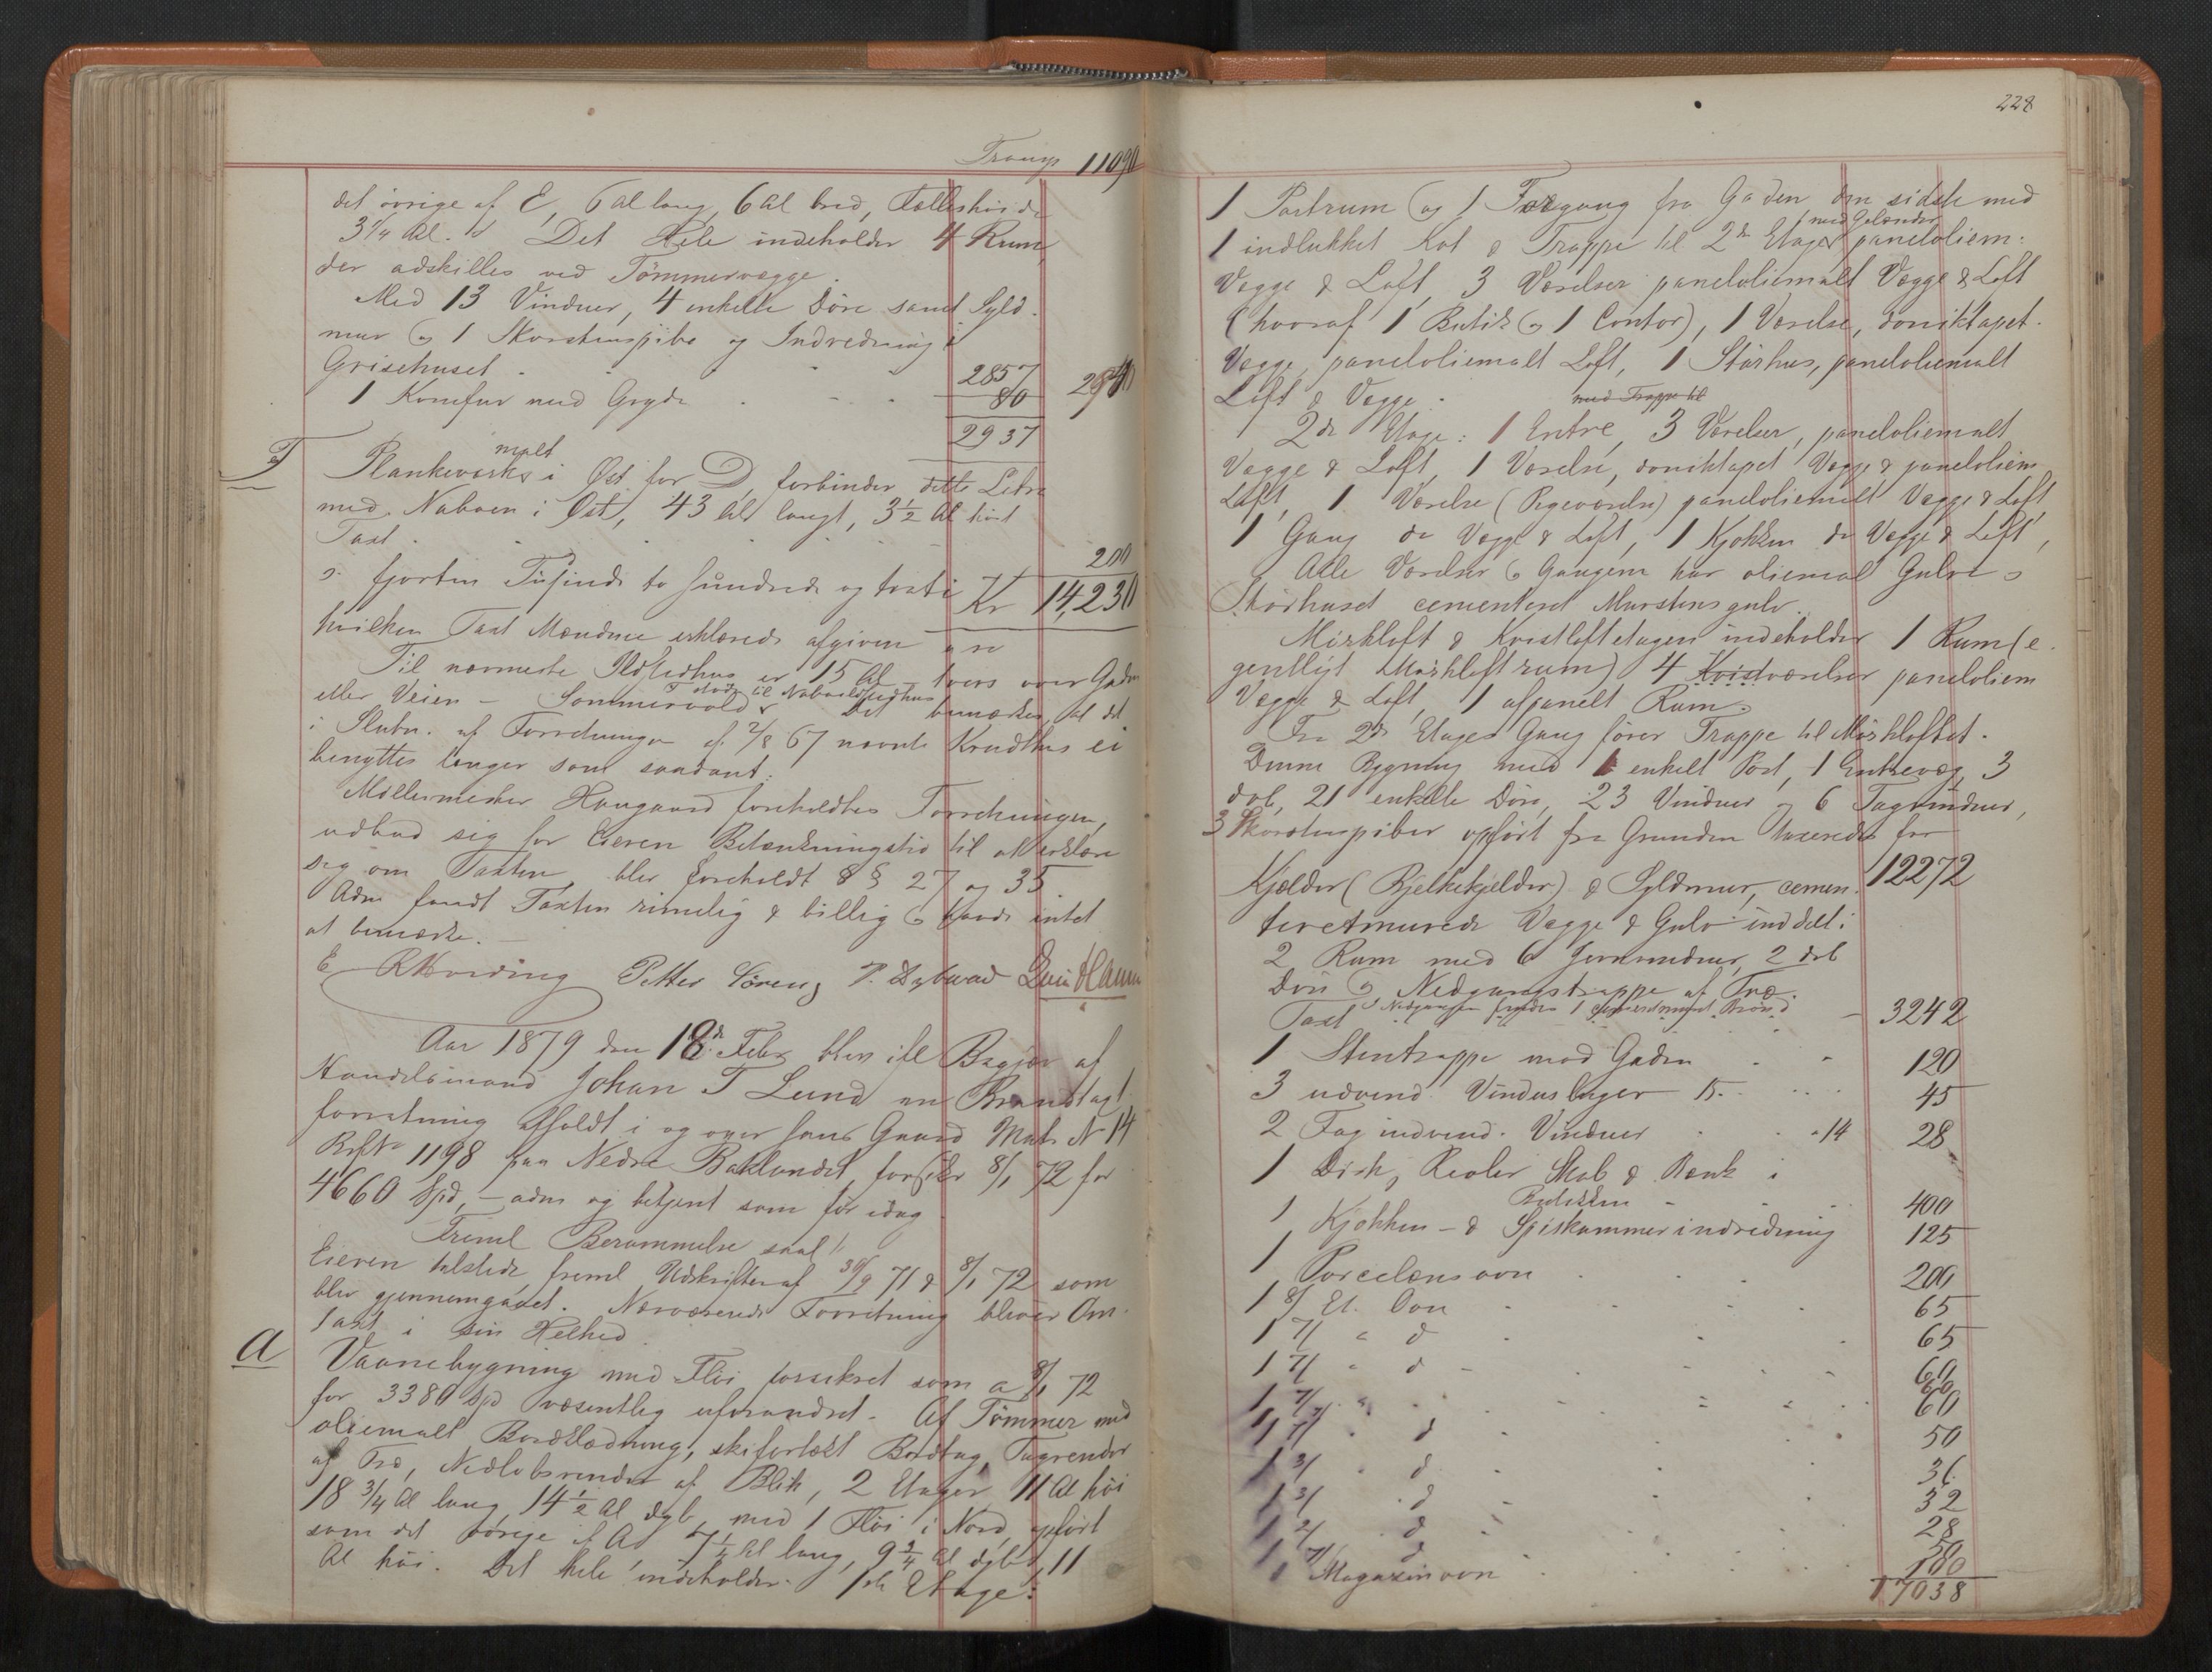 Transp 11090
det övrige af E, 6 Al lang, 6 Al bred, Fælleshöide
3 1/4 Al. Det Hele indeholder 4 Rum
der adskilles ved Tömmervægge.
Med 13 Vinduer, 4 enkelte Döre samt Syld-
mur og 1 Skorstenspibe og Indredning i
Grisehuset . . . 2857
1 Komfur med Gryde . . . 80 2940
2937
F Plankeværk malt i Öst for D, forbinder dette Litra
med Naboen i Öst, 43 Al langt, 3 1/2 Al höit
Taxt . . . 200
s: fjorten Tusinde to Hundrede og tretti Kr 14,230
hvilken Taxt Mændene erklærede afgiven
Til nærmeste Ildstedhus er 15 Al tvers over Gaden
eller Veien – Sommervold F stöder til Naboildstedhus Det bemærkes, at det
i Slutn. af Forretningen af 2/8 67 nævnte Krudthus ei
benyttes længer som saadant.
Möllermester Haugaard foreholdtes Forretningen,
udbad sig for Eieren Betænkningstid til at erklære
sig om Taxten, blev foreholdt § 27 og 35.
Adm fandt Taxten rimelig & billig og havde intet
at bemærke.
E RHvirding Petter Sörens P. Dybwad
Aar 1879 den 18de Febr blev ifl Begjær af
Handelsmand Johan T Lund en Brandtaxt
forretning afholdt i og over hans Gaard Matr No 14
BrfNo 1198 paa Nedre Baklandet, forsikr 8/1 72 for
4660 Spd, – adm og betjent som för idag
Freml Berammelse saal
Eieren tilstede freml Udskrifter af 30/9 71 & 8/1 72 som
blev gjennemgaaet. Nærværende Forretning bliver Om-
taxt i sin Helhed.
A Vaanebygning med Flöi forsikret som a 8/1 72
for 3380 Spd væsentlig uforandret. Af Tömmer med
oliemalt Bordklædning, skifertækt Bordtag, Tagrender
af Træ, Nedlöbsrender af Blik, 2 Etager 11 Al höi
18 3/4 Al lang 14 1/2 Al dyb, med 1 Flöi i Nord, opfört
som det övrige af A 7 1/2 Al lang, 9 3/4 Al dyb, 11
Al höi. Det hele indeholder. 1ste Etage:
228
1 Portrum og 1 Forgang fra Gaden den sidste med
1 indlukket Kot & Trappe til 2den Etage med Gelænder paneloliem:
Vægge & Loft, 3 Værelser paneloliemalt Vægge & Loft
(hvoraf 1 Butik og 1 Contor), 1 Værelse, donniktapet
Vægge, paneloliemalt Loft, 1 Störhus, paneloliemalt
Loft & Vægge. med Trappe til
2den Etage: 1 Entre, 3 Værelser, paneloliemalt
Vægge & Loft, 1 Værelse, doniktapet Vægge & paneloliem
Loft, 1 Værelse (Pigeværelse) paneloliemalt Vægge & Loft,
1 Gang do Vægge & Loft, 1 Kjökken do Vægge & Loft,
Alle Værelser og Gangene har oliemal Gulve
Störhuset cementeret Murstensgulv.
Mörkloft & Kvistloftetagen indeholder 1 Rum (e-
gentligt Mörkloftrum) 4 Kvistværelser paneloliem
Vægge & Loft, 1 afpanelt Rum.
Fra 2den Etages Gang förer Trappe til Mörkloftet.
Denne Bygning med 1 enkelt Port, 1 Entrevæg, 3
dob, 21 enkelte Döre, 23 Vinduer og 6 Tagvinduer,
3 Skorstenspiber opfört fra Grunden taxeredes for
12272
Kjælder (Bjelkekjelder) & Syldmur, cemen-
teretmurede Vægge & Gulv inddelt i
2 Rum med 6 Jernvinduer, 2 dob
Döre og Nedgangstrappe af Træ.
Taxt 1 cementmuret Brönd – 3242
1 Stentrappe mod Gaden . . 120
3 udvend. Vindusluger 15 . . . 45
2 Fag indvend. Vinduer . . 14 28
1 Disk, Reoler Skab & Bænk i
Butikken – . . 400
1 Kjökken- & Spiskammerindredning 125
1 Porcelænsovn . . . 200
1 8/ Et. Ovn . . . 65
1 7/ " d . . . 65
1 7/ " d . . . 60
1 7/ " . . . 60
1 7/ d . . . 50
1 3/ d . . . 36
1 3/ d . . . 32
1 2/ d . . . 28
1 7/ d . . . 50
1 Magazinovn . . . 100
17038